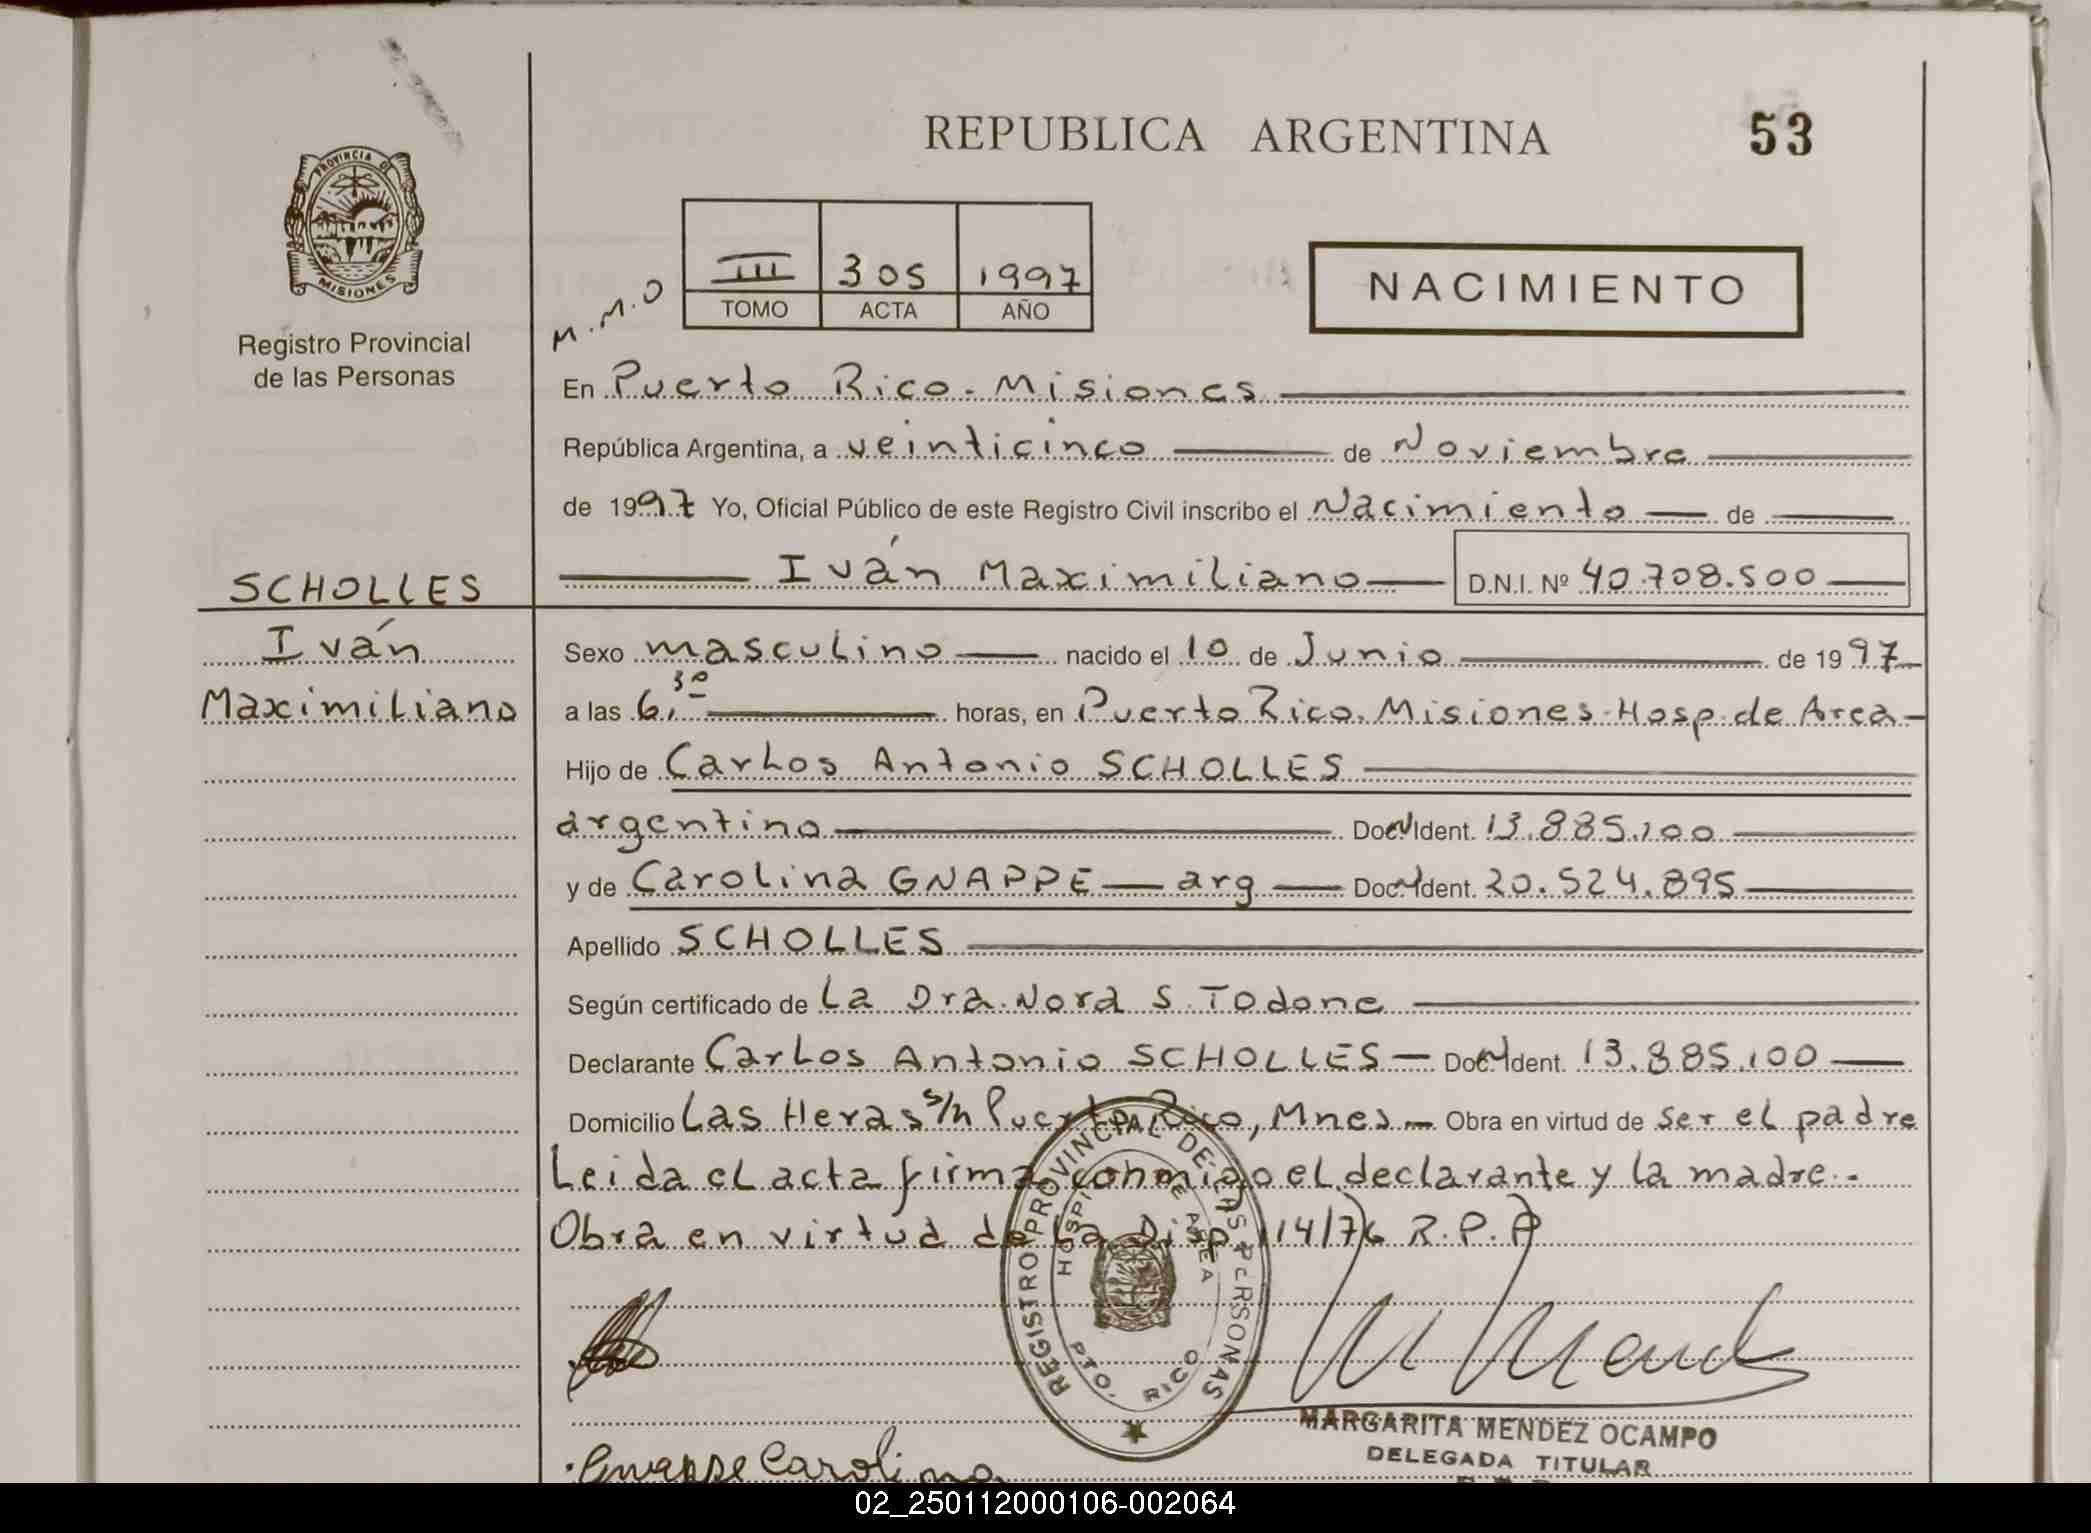 REPUBLICA ARGENTINA 53
PROVINCIA DE MISIONES
Registro Provincial
de las Personas
M.M.O
III 305 1997
TOMO ACTA AÑO
NACIMIENTO
En Puerto Rico - Misiones
República Argentina, a veinticinco de Noviembre
de 1997 Yo, Oficial Público de este Registro Civil inscribo el Nacimiento de
Iván Maximiliano D.N.I. Nº 40.708.500
SCHOLLES
Iván
Maximiliano
Sexo masculino nacido el 10 de Junio de 1997
a las 6,30 horas, en Puerto Rico. Misiones-Hosp. de Area-
Hijo de Carlos Antonio SCHOLLES
argentino Doc. Ident. 13.885.100
y de Carolina GNAPPE arg Doc. Ident. 20.524.895
Apellido SCHOLLES
Según certificado de La Dra. Nora S. Todone
Declarante Carlos Antonio SCHOLLES Doc. Ident. 13.885.100
Domicilio Las Heras s/n Puerto Rico, Mnes Obra en virtud de ser el padre
Leida el acta firma conmigo el declarante y la madre.-
Obra en virtud de la Disp 114/76 R.P.P
REGISTRO PROVINCIAL DE LAS PERSONAS
HOSPI DE AREA
PTO. RICO
MARGARITA MENDEZ OCAMPO
DELEGADA TITULAR
Gnappe Carolina
02_250112000106-002064